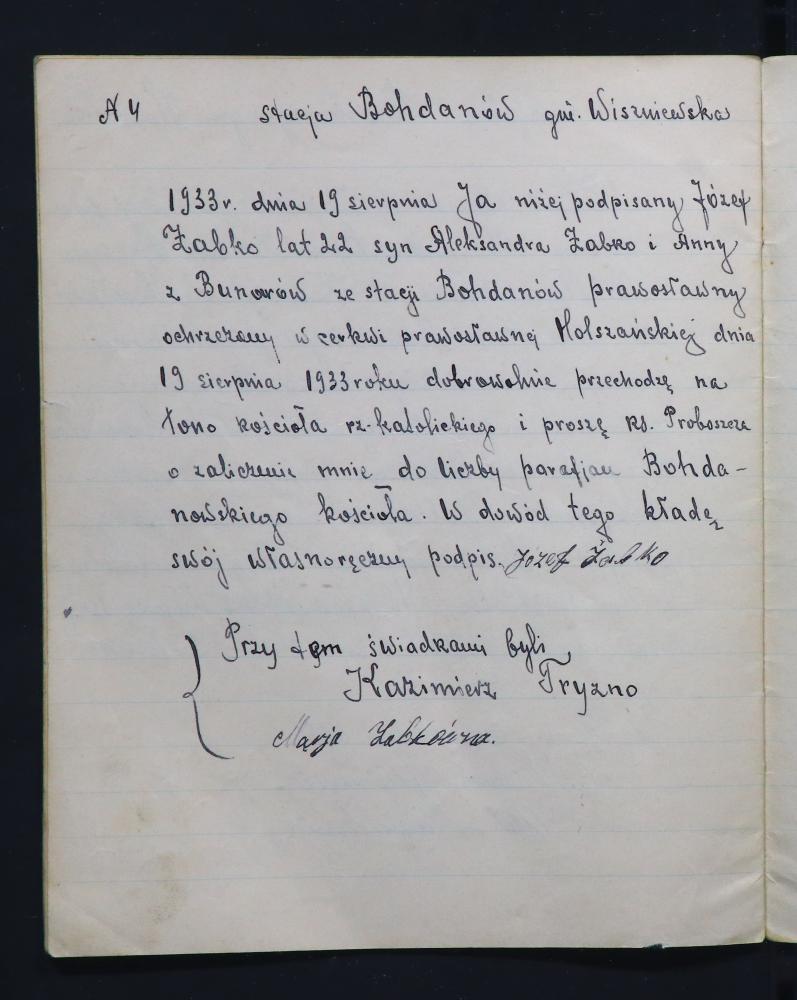 № 4 stacja Bohdanów gm. Wiszniewska
1933 r. dnia 19 sierpnia Ja niżej podpisany Józef
Żabko lat 22 syn Aleksandra Żabko i Anny
z Bunarów ze stacji Bohdanów prawosławny
ochrzczony w cerkwi prawosławnej Holszańskiej dnia
19 sierpnia 1933 roku dobrowolnie przechodzę na
łono kościoła rz-katolickiego i proszę ks. Proboszcza
o zaliczenie mnie do liczby parafjan Bohda-
nowskiego kościoła. W dowód tego kładę
swój własnoręczny podpis. Józef Żabko
Przy tem świadkami byli
Kazimierz Tryzno
Marja Żabkówna.